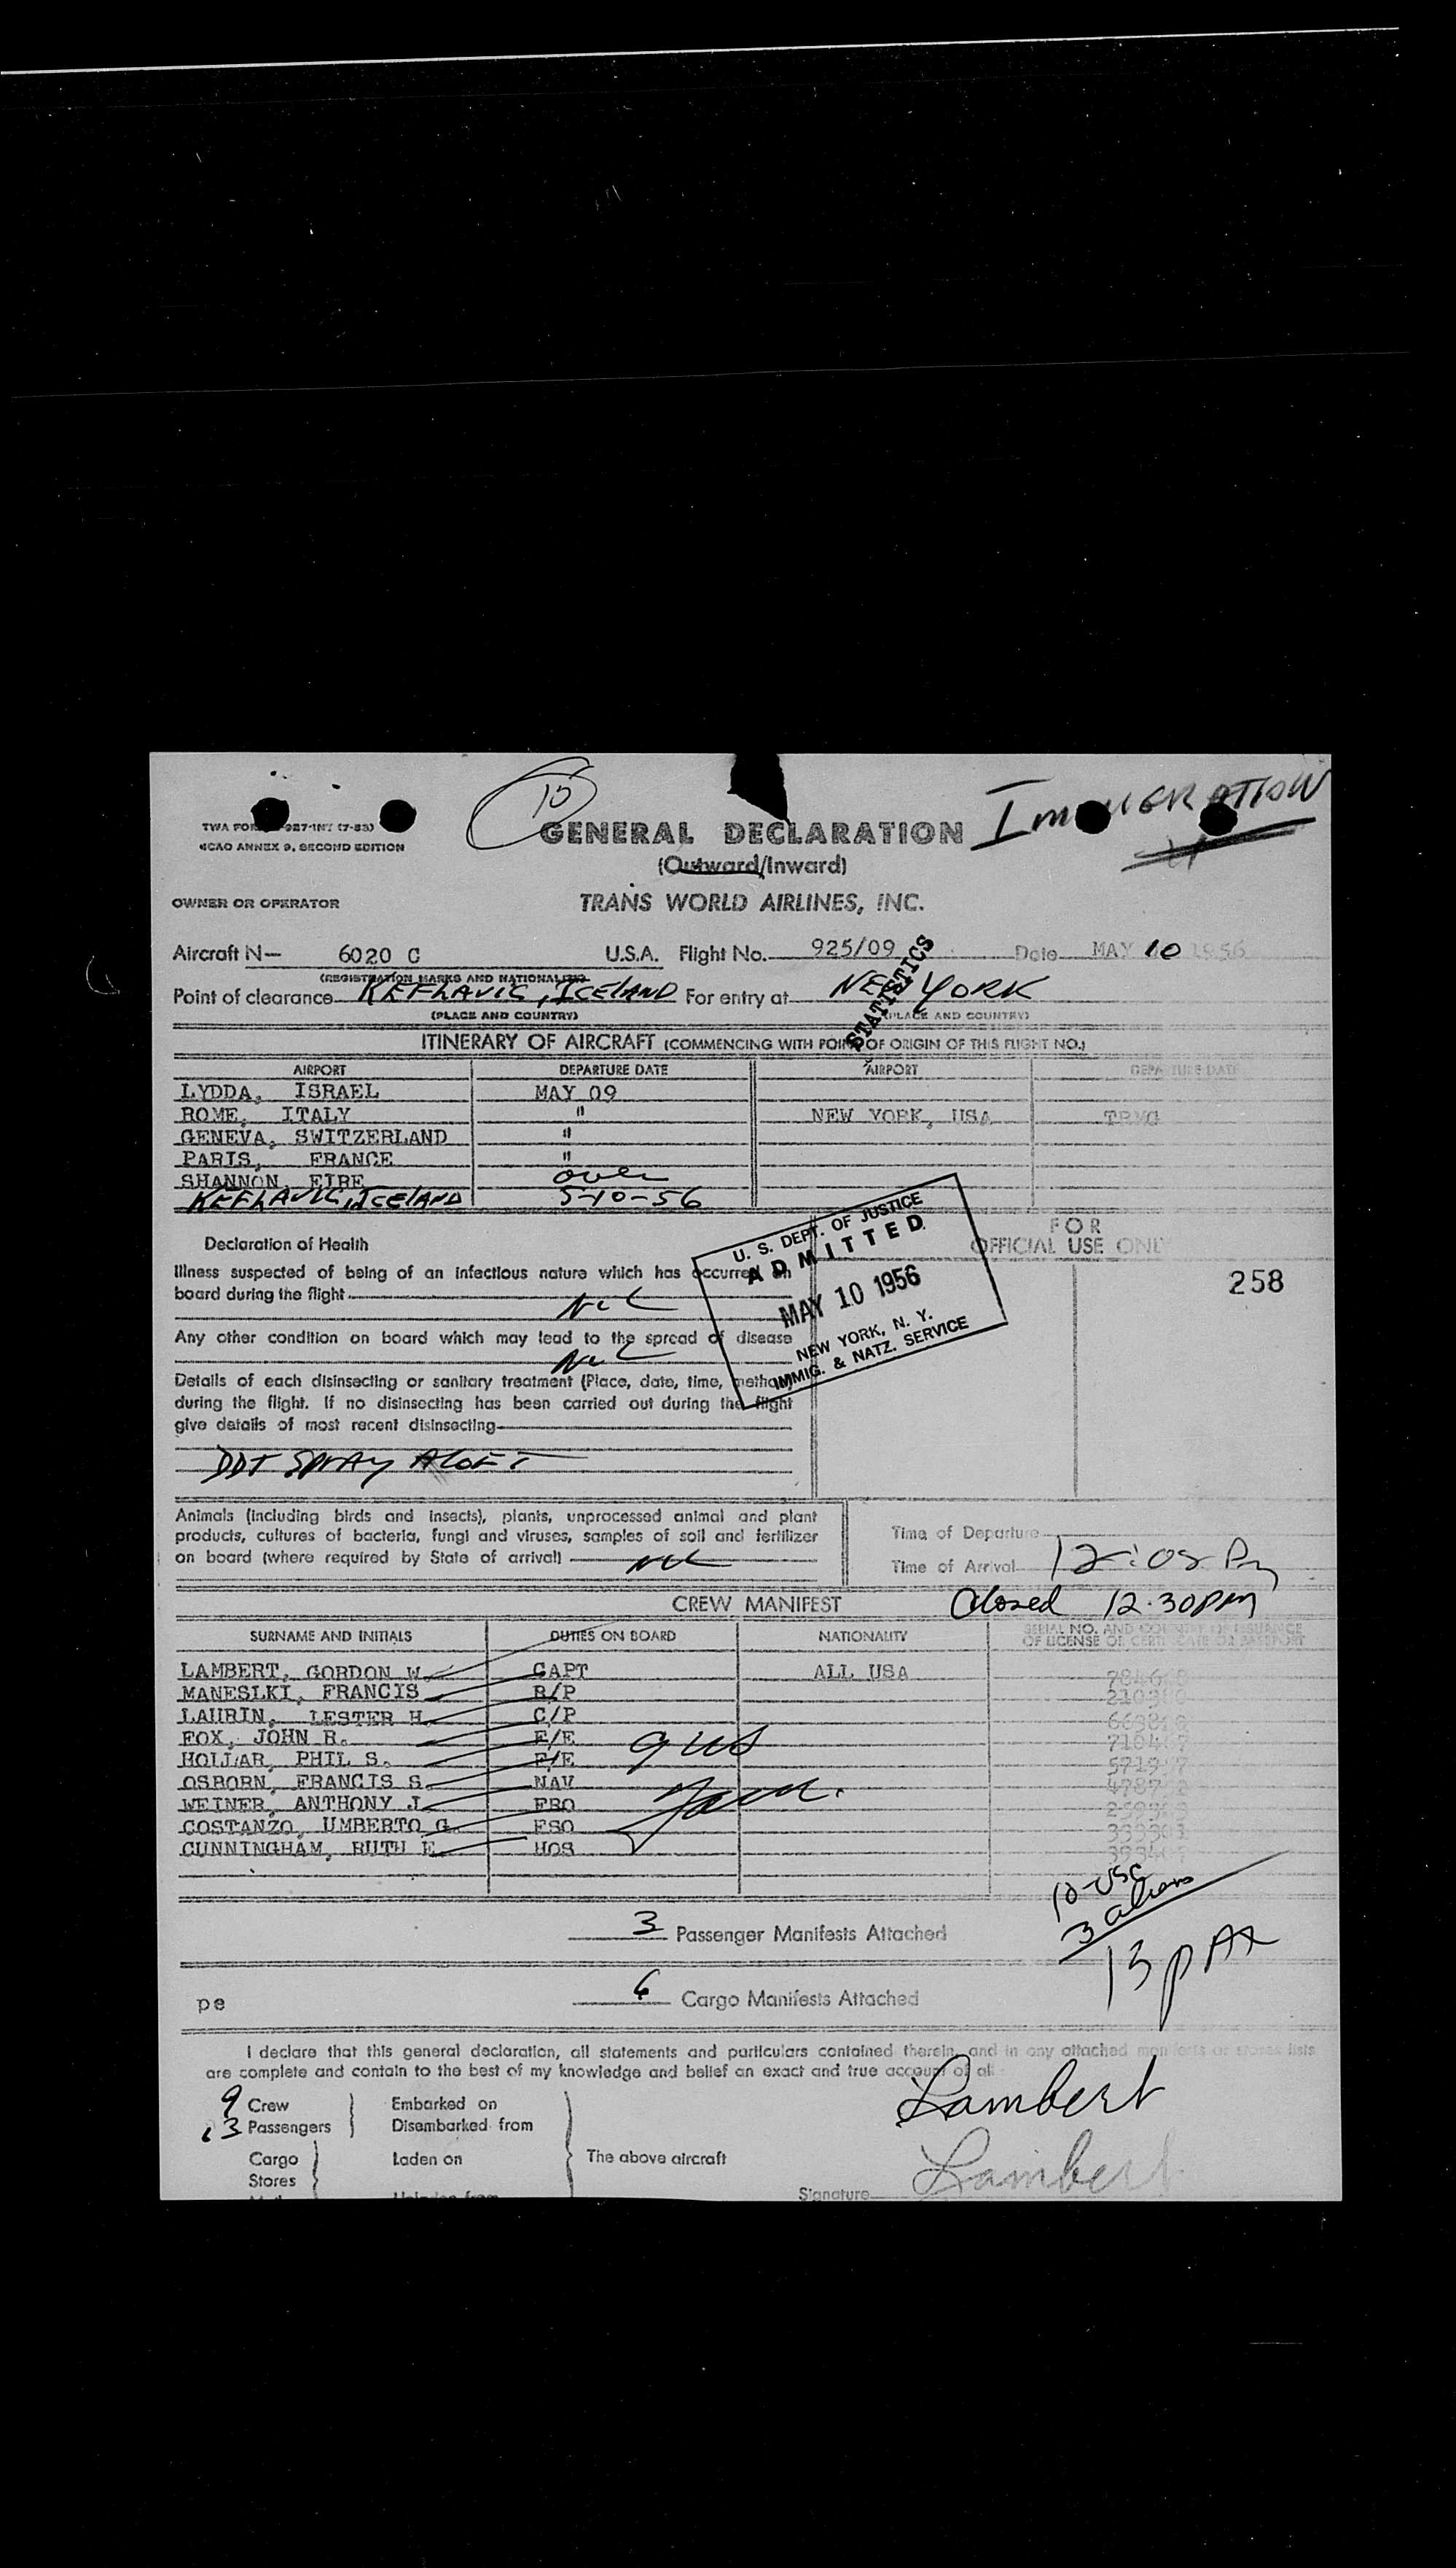 15
IMMIGRATION
TWA FOR 927-INT (7-53)
ICAO ANNEX 9, SECOND EDITION
GENERAL DECLARATION
(Outward/Inward)
OWNER OR OPERATOR TRANS WORLD AIRLINES, INC.
Aircraft N— 6020 C U.S.A. Flight No. 925/09 Date MAY 10 1956
(REGISTRATION MARKS AND NATIONALITY)
Point of clearance KEFLAVIC, ICELAND For entry at NEW YORK
(PLACE AND COUNTRY) (PLACE AND COUNTRY)
STATISTICS
ITINERARY OF AIRCRAFT (COMMENCING WITH POINT OF ORIGIN OF THIS FLIGHT NO.)
AIRPORT DEPARTURE DATE AIRPORT DEPARTURE DATE
LYDDA, ISRAEL MAY 09
ROME, ITALY " NEW YORK, USA TRMG
GENEVA, SWITZERLAND "
PARIS, FRANCE "
SHANNON, EIRE over
KEFLAVIC, ICELAND 5-10-56
U. S. DEPT. OF JUSTICE
ADMITTED
MAY 10 1956
NEW YORK, N. Y.
IMMIG. & NATZ. SERVICE
FOR
OFFICIAL USE ONLY
258
Declaration of Health
Illness suspected of being of an infectious nature which has occurred on
board during the flight Nil
Any other condition on board which may lead to the spread of disease
Nil
Details of each disinsecting or sanitary treatment (Place, date, time, method)
during the flight. If no disinsecting has been carried out during the flight
give details of most recent disinsecting
DDT SPRAY ALOFT
Animals (including birds and insects), plants, unprocessed animal and plant
products, cultures of bacteria, fungi and viruses, samples of soil and fertilizer
on board (where required by State of arrival) Nil
Time of Departure
Time of Arrival 12:05 Pm
Closed 12.30pm
CREW MANIFEST
SURNAME AND INITIALS DUTIES ON BOARD NATIONALITY SERIAL NO. AND COUNTRY OF ISSUANCE
OF LICENSE OR CERTIFICATE OR PASSPORT
LAMBERT, GORDON W. CAPT ALL USA
MANESLKI, FRANCIS R/P
LAURIN, LESTER H. C/P
FOX, JOHN R. F/E
HOLLAR, PHIL S. F/E
OSBORN, FRANCIS S. NAV
WEINER, ANTHONY J. FRO
COSTANZO, UMBERTO G. FSO
CUNNINGHAM, RUTH E HOS
9 US
10-USC
3 aliens
13 pax
3 Passenger Manifests Attached
pe 6 Cargo Manifests Attached
I declare that this general declaration, all statements and particulars contained therein, and in any attached manifests or stores lists
are complete and contain to the best of my knowledge and belief an exact and true account of all
9 Crew Embarked on
13 Passengers Disembarked from
Cargo Laden on The above aircraft
Stores
Lambert
Lambert
Signature